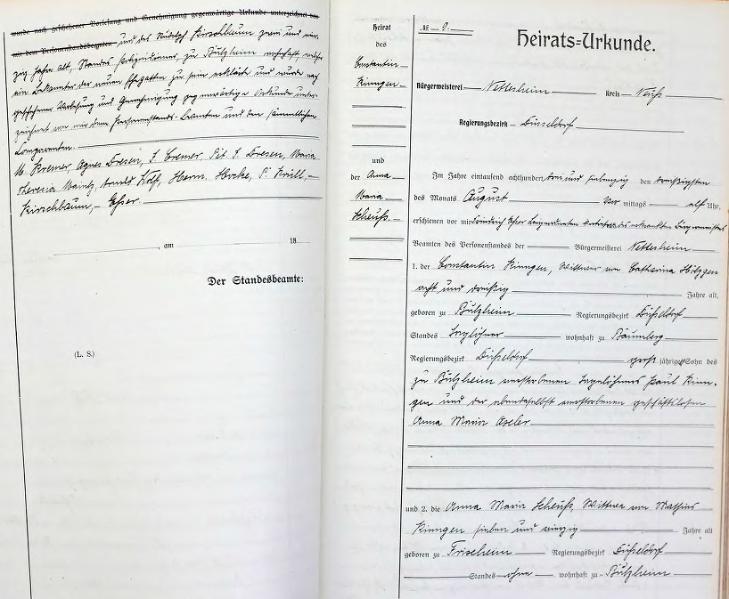 wurde nach geschehener Vorlesung und Genehmigung gegenwärtige Urkunde unterzeichnet
und des Rudolph Kirschbaum zwei und
zig Jahre alt, Standes zu Bützheim wohnhaft, welcher
ein Bekannter der neuen Ehegatten zu sein erklärte und wurde nach
geschehener Vorlesung und Genehmigung gegenwärtige Urkunde unter-
zeichnet von mir dem Personenstands-Beamten und den sämmtlichen
Comparenten.
M. Kremer, Agnes Dresen, J. Cremer, Pet. J. Dresen, Maria
Theresia Arnold Herm. P. Krill,
Kirschbaum, Esser.
am 18
Der Standesbeamte:
(L. S.)
Heirat
des
Constantin
Kinngen
und
der Anna
Maria
Scheuß
№ 9.
Heirats-Urkunde.
Bürgermeisterei Nettesheim Kreis Neuß
Regierungsbezirk Düsseldorf
Im Jahre eintausend achthundert drei und siebenzig den dreißigsten
des Monats August Vor mittags elf Uhr,
erschienen vor mir Friedrich Esser Bürgermeister
Beamten des Personenstandes der Bürgermeisterei Nettesheim
1. der Constantin Kinngen, Wittwer von Catharina Hilgen
acht und dreißig Jahre alt,
geboren zu Bützheim Regierungsbezirk Düsseldorf
Standes Tagelöhner wohnhaft zu Bäumberg
Regierungsbezirk Düsseldorf groß jähriger Sohn des
zu Bützheim verstorbenen Tagelöhners Paul Kinn-
gen und der ebendaselbst verstorbenen geschäftslosen
Anna Maria Aseler
und 2. die Anna Maria Scheuß, Wittwe von Mathias
Kinngen sieben und vierzig Jahre alt
geboren zu Frixheim Regierungsbezirk Düsseldorf
Standes ohne wohnhaft zu Bützheim